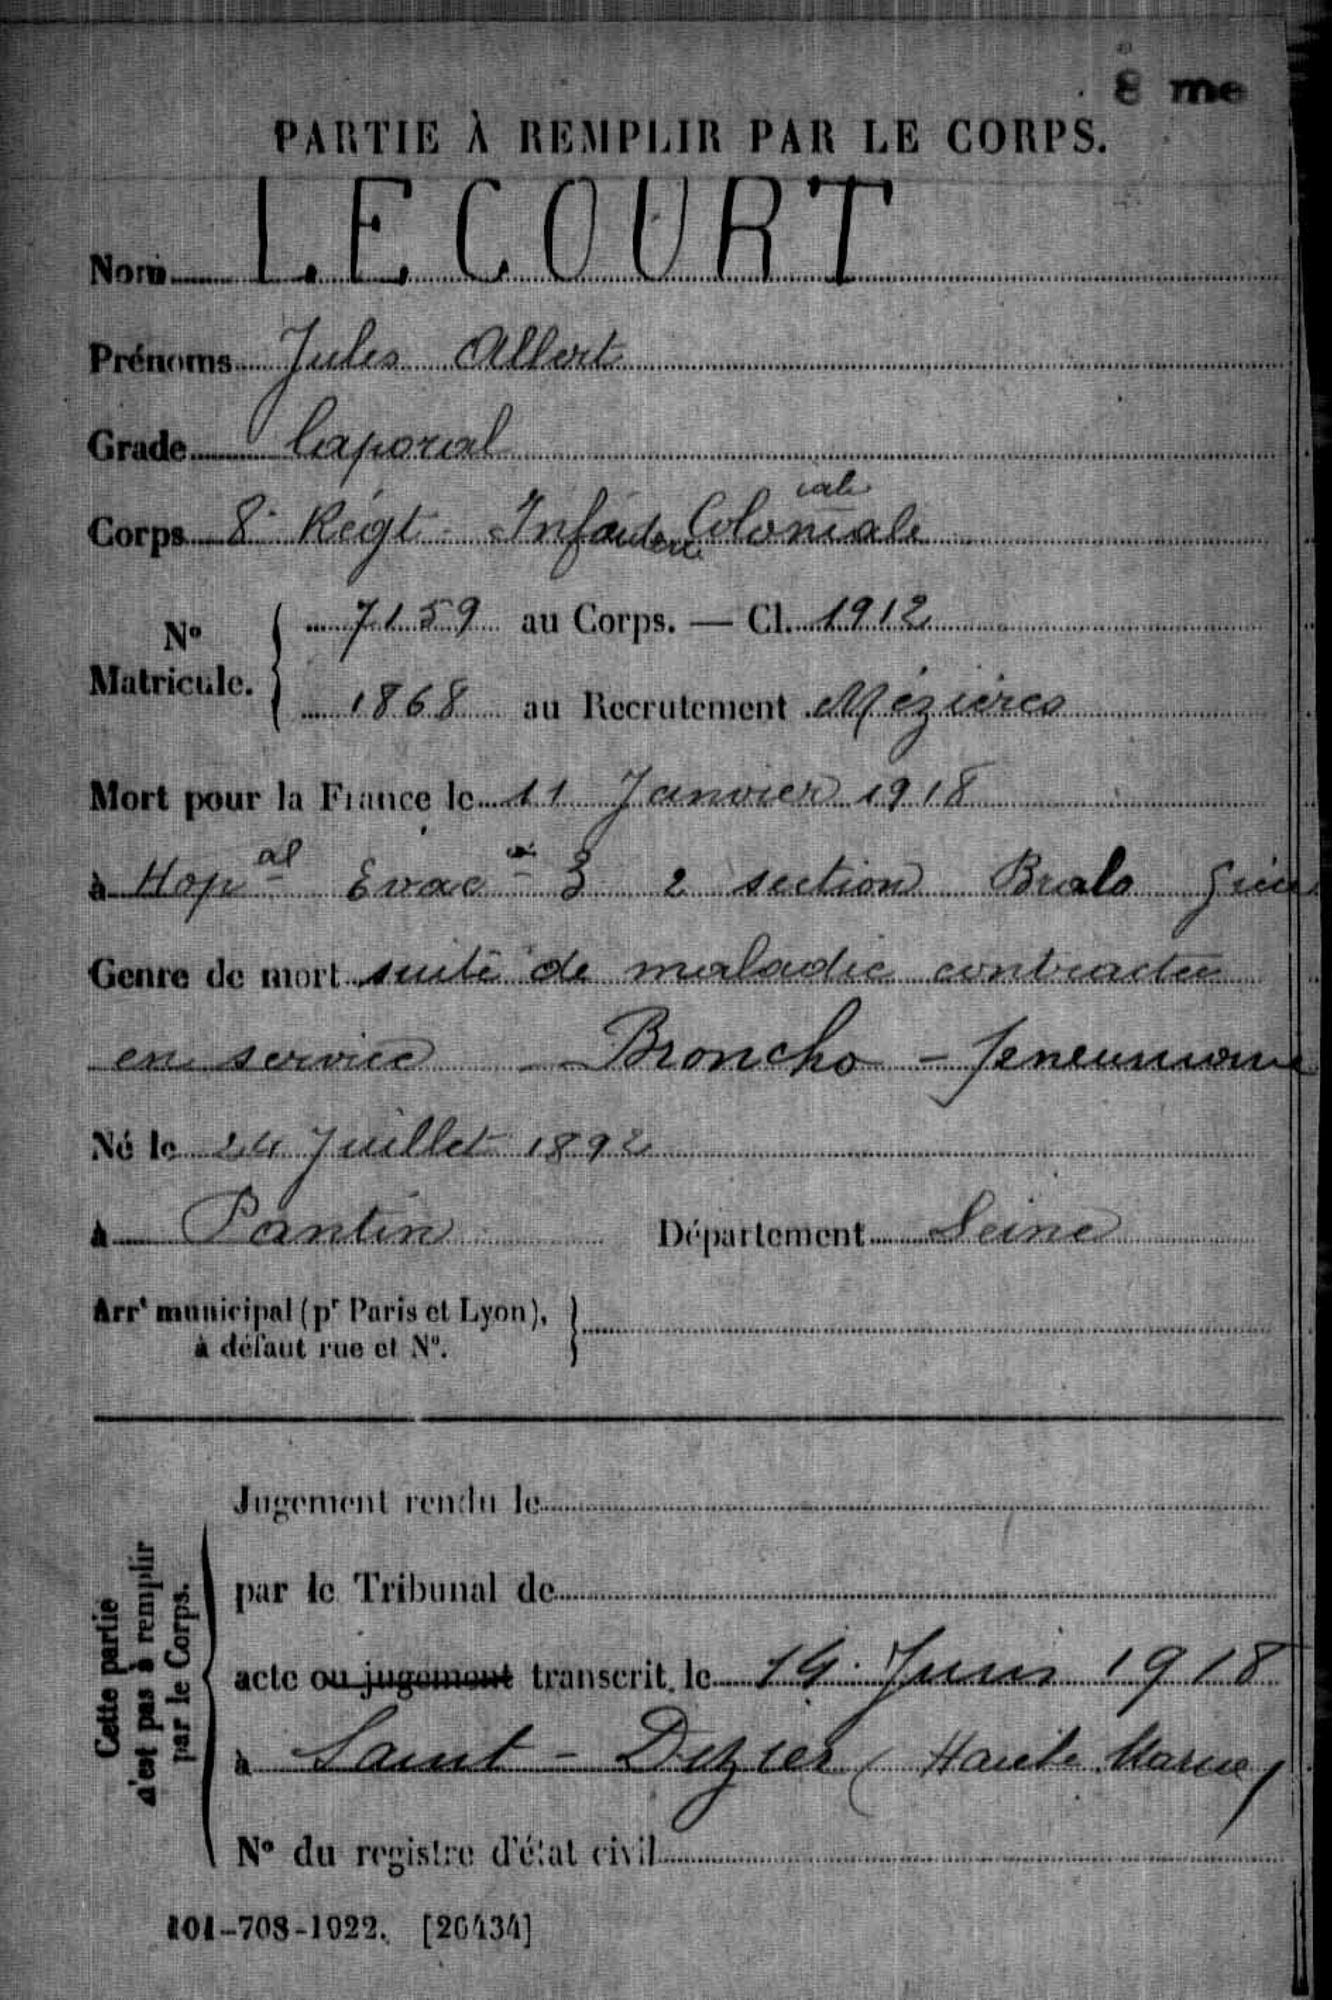 8 me
PARTIE À REMPLIR PAR LE CORPS.
Nom LECOURT
Prénoms Jules Albert
Grade Caporal
iale
Corps 8e Régt Infanterie Coloniale
No Matricule. 7159 au Corps. — Cl. 1912
1868 au Recrutement Mézières
Mort pour la France le 11 Janvier 1918
à Hopal Evac 3 2 section Bralo
Genre de mort suite de maladie contractée
en service Broncho-pneumonie
Né le 24 Juillet 1892
à Pantin Département Seine
Arrt municipal (pr Paris et Lyon),
à défaut rue et No.
Cette partie
n'est pas à remplir
par le Corps.
Jugement rendu le
par le Tribunal de
acte ou jugement transcrit le 14 Juin 1918
à Saint-Dizier (Haute Marne)
No du registre d'état civil
101-708-1922. [26434]